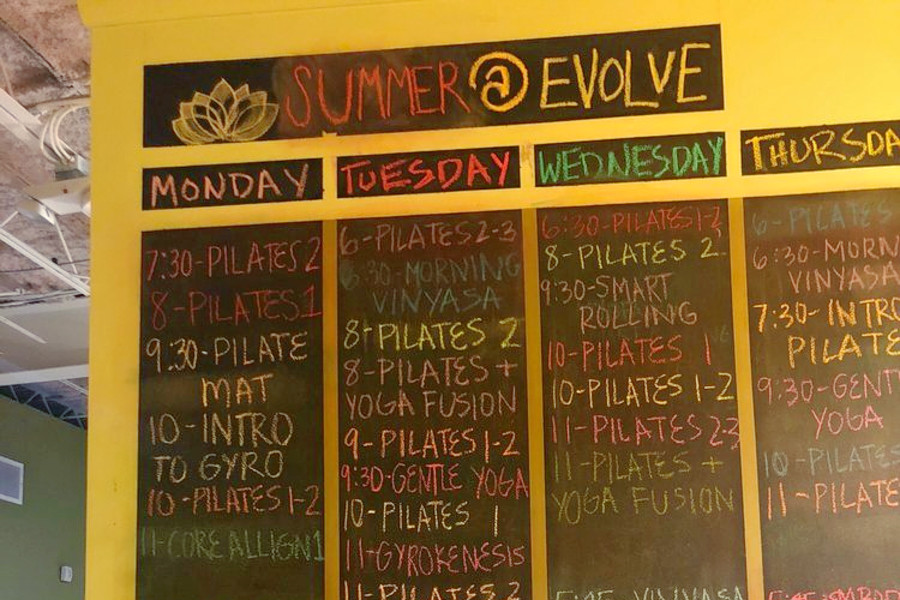 SUMMER @ EVOLVE
MONDAY
7:30-PILATES 2
8-PILATES 1
9:30-PILATE
MAT
10-INTRO
TO GYRO
10-PILATES 1-2
11-CORE ALLIGN 1
TUESDAY
6-PILATES 2-3
6:30-MORNING
VINYASA
8-PILATES 2
8-PILATES +
YOGA FUSION
9-PILATES 1-2
9:30-GENTLE YOGA
10-PILATES 1
11-GYROKENESIS
11-PILATES 2
WEDNESDAY
6:30-PILATES 1-2
8-PILATES 2
9:30-SMART
ROLLING
10-PILATES 1
10-PILATES 1-2
11-PILATES 2-3
11-PILATES +
YOGA FUSION
VINYASA
THURSDA
6-PILATES
6:30-MORN
VINYASA
7:30-INTRO
PILATE
9:30-GENT
YOGA
10-PILATES
11-PILATE